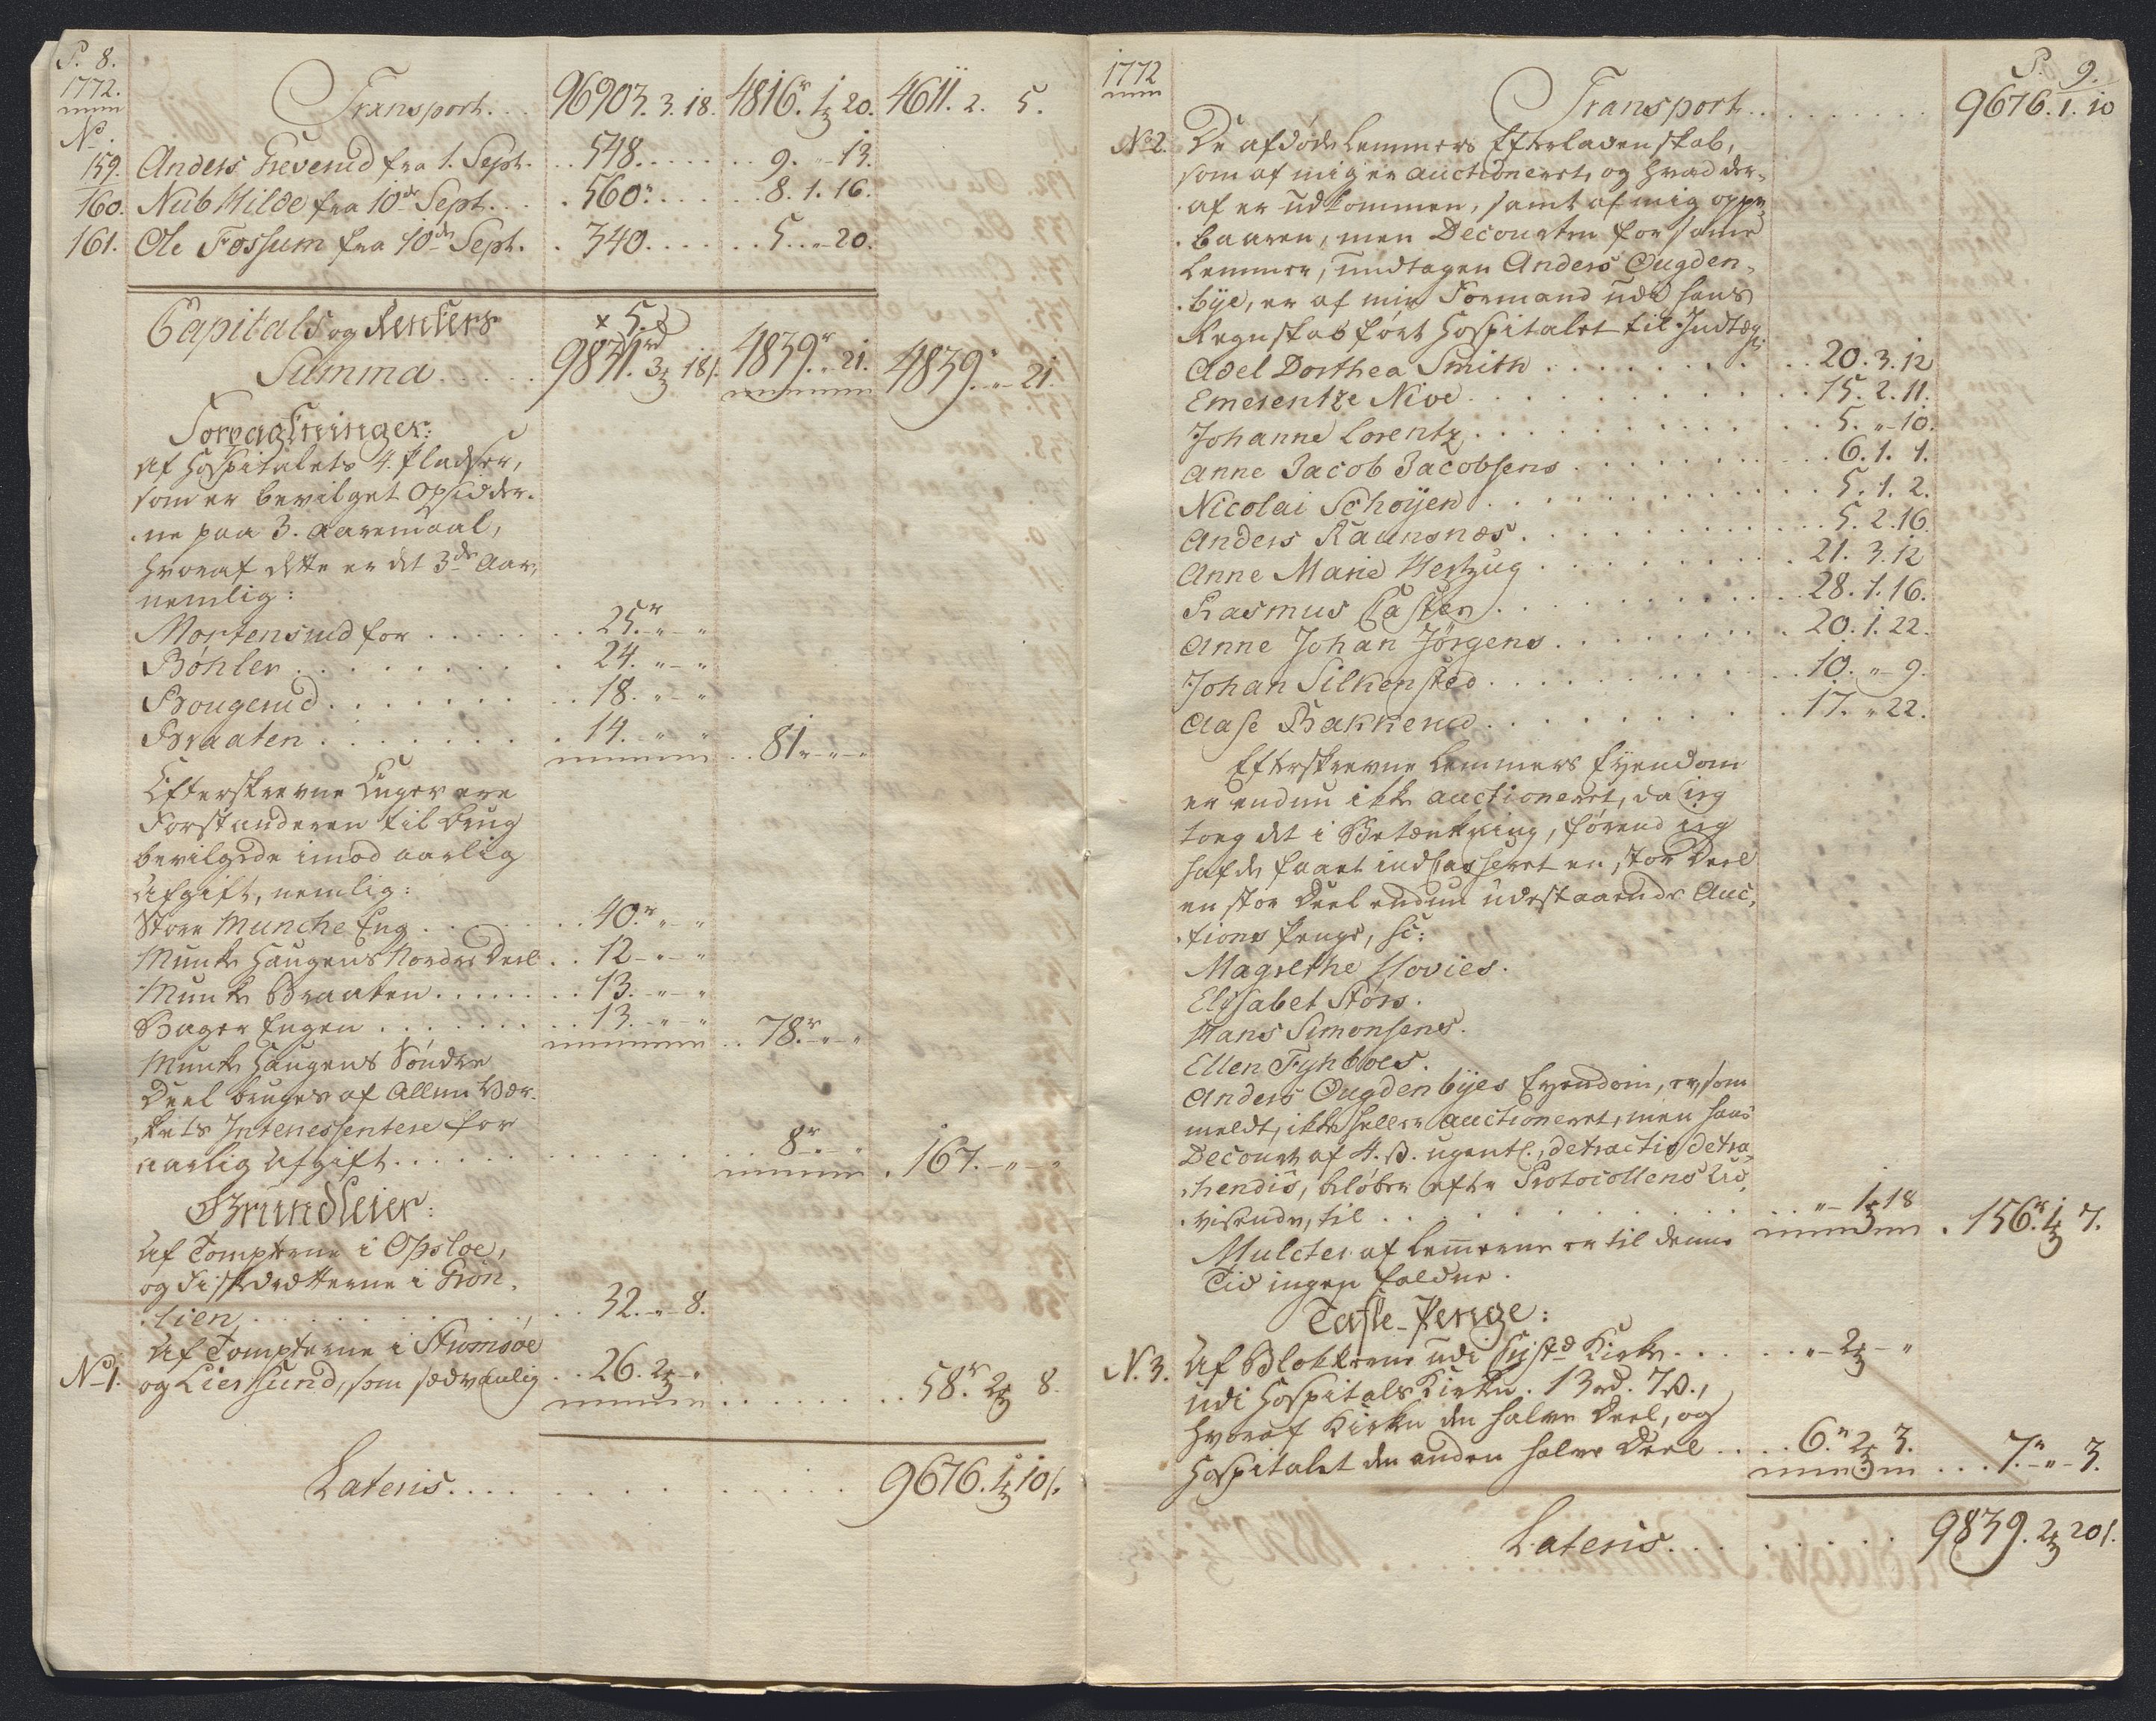 P. 8.
1772.
Transport... 96903. 3. 18. 4816r. 1. 20. 4611. 2. 5.
No.
159. Anders Greverud fra 1. Sept. .. 548...... 9. „ 13.
160. Nub Hilde fra 10de Sept... . 560...... 8. 1. 16.
161. Ole Fossum fra 10de Sept. . 340...... 5. „ 20.
Capitals og Renters
Summa..... 4839r. „ 21. 4839. „ 21.
Forpagtninger:
Af Hospitalets 4. Pladser,
som er bevilget Opsidder-
ne paa 3. aaremaal,
hvoraf dette er det 3de Aar,
nemlig:
Mortensrud for ...... 25r. „ „
Bøhler ........ 24. „ „
Bougerud ....... 18. „ „
Braaten ........ 14. „ „ .. 81. „ „
Efterskrevne Enger ere
Forstanderen til Brug
bevilgede imod aarlig
Afgift, nemlig:
Store Munche Eng ...... 40r. „ „
Munke Haugens Nordre Deel .. 12. „ „
Munke Braaten ....... 13. „ „
Bager Engen ....... 13. „ „ .. 78r. „ „
Munke Haugens Søndre
Deel bruges af Allun Vær-
kets Interessentere for
aarlig Afgift ....... 8r. „ „ . 167. „ „
Grundleier:
Af Tompterne i Opsloe,
og Fiskedrætterne i Grøn-
lien, ........ 32. „ 8.
No 1. Af Tompterne i Strømsøe
og Lier Sund, som sædvanlig .. 26. 2. „ ...... 58r. 2. 8.
Lateris.......... 9676. 1. 10.
1772
P. 9.
Transport......... 9676. 1. 10
No 2. De afdøde Lemmers Efterladenskab,
som af mig er auctioneret, og hvad der-
af er udkommen, samt af mig oppe-
baaren, men Decourten for samme
Lemmer, undtagen Anders Ougden-
bye, er af min Formand udi hans
Regnskab ført Hospitalet til Indtægt
Adel Dorthea Smith ....... 20. 3. 12
Emerentze Nive ......... 15. 2. 11.
Johanne Lorentz ........ 5. „ 10.
Anne Jacob Jacobsens ....... 6. 1. 1.
Nicolai Schøyen ........ 5. 1. 2.
Anders Raunsnæs ........ 5. 2. 16.
Anne Marie Hertzug ....... 21. 3. 12
Rasmus Casten ......... 28. 1. 16.
Anne Johan Jørgens ....... 20. 1. 22.
Johan Silkensted ........ 10. „ 9.
Aase Bakkerud ........ 17. „ 22.
Efterskrevne Lemmers Eyendom
er endnu ikke auctioneret, da jeg
toeg det i Betænkning, førend jeg
hafde faaet indcasseret en stor Deel
en stor Deel endnu udestaaende Auc-
tions Penge, sc:
Magrethe Hovies.
Elisabet Støvs.
Hans Simonsens.
Ellen Fyhboes.
Anders Ougdenbyes Eyendom, er, som
meldt, ikke heller auctioneret, men hans
Decourt af 4. ß. ugentl., detractis detra-
hendis, beløber efter Protocollens Ud-
visende, til ......... „ 1. 18 . 156r. 1. 7.
Mulcter af Lemmerne er til denne
Tid ingen faldne.
Tafle-Penge:
N. 3. Af Blokkerne udi Kirke..... „ 2. „
udi Hospitals Kirken. 13rd. 7ß.,
hvoraf Kirken den halve Deel, og
Hospitalet den anden halve Deel .... 6. 2. 3. ... 7. „ 3.
Lateris........ 9839. 2. 20.